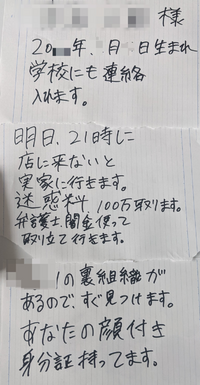 様
20 年、 月 日生まれ
学校にも連絡
入れます。
明日、21時に
店に来ないと
実家に行きます。
迷惑料 100万取ります。
弁護士、闇金使って
取り立て行きます。
1の裏組織が
あるので、すぐ見つけます。
あなたの顔付き
身分証持ってます。